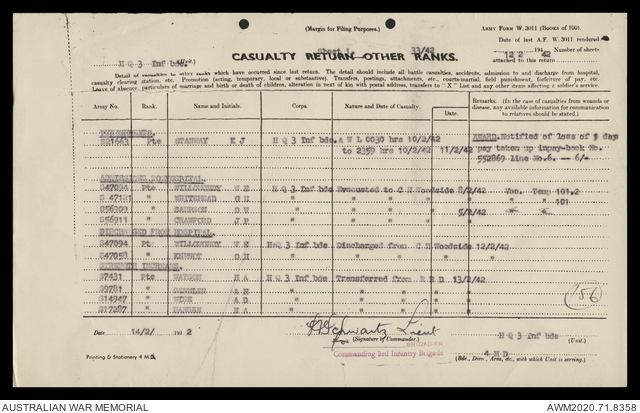 (Margin for Filing Purposes.)
ARMY FORM W. 3011 (BOOKS OF 100).
Date of last A.F. W.3011 rendered
Sheet 1. 33/42
12 2 1942 Number of sheets
attached to this return
H Q 3 Inf bde.
CASUALTY RETURN—OTHER RANKS.
Detail of casualties to other ranks which have occurred since last return. The detail should include all battle casualties, accidents, admission to and discharge from hospital,
casualty clearing station, etc. Promotion (acting, temporary, local or substantive). Transfers, postings, attachments, etc., courts-martial, field punishment, forfeiture of pay, etc.
Leave of absence, particulars of marriage and birth or death of children, alteration in next of kin with postal address, transfers to "X" List and any other items affecting a soldier's service.
Army No. Rank. Name and Initials. Corps. Nature and Date of Casualty. Date. Remarks. (In the case of casualties from wounds or disease, any available information for communication to relatives should be stated.)
Pte STANWAY K J H Q 3 Inf bde A W L 0030 hrs 10/2/42 AWARD. Notified of loss of 1 day
to 2359 hrs 10/2/42 11/2/42 pay taken up inpay-book No.
552869 line No.6. -- 6/-
S47094 Pte WILLOUGHBY H Q 3 Inf bde Evacuated to C H Woodside 8/2/42 Vac. Temp 101.2
" " " " " 101
" " " " 5/2/42
S56911 " CRAWFORD J P " " "
DISCHARGED FROM HOSPITAL.
S47094 Pt. WILLOUGHBY H Q 3 Inf bde Discharged from C H Woodside 12/2/42
" " " " "
Pte H A H Q 3 Inf bde Transferred from R R D 13/2/42
" A H " " " "
" A D " " " "
" " " " "
156
Date 14/2/ 1942
Schwartz Lieut
for (Signature of Commander.)
BRIGADIER
Commanding 3rd Infantry Brigade
H Q 3 Inf bde (Unit.)
4 M D
(Bde., Divn., Area, etc., with which Unit is serving.)
Printing & Stationery 4 M.D.
AUSTRALIAN WAR MEMORIAL
AWM2020.71.8358